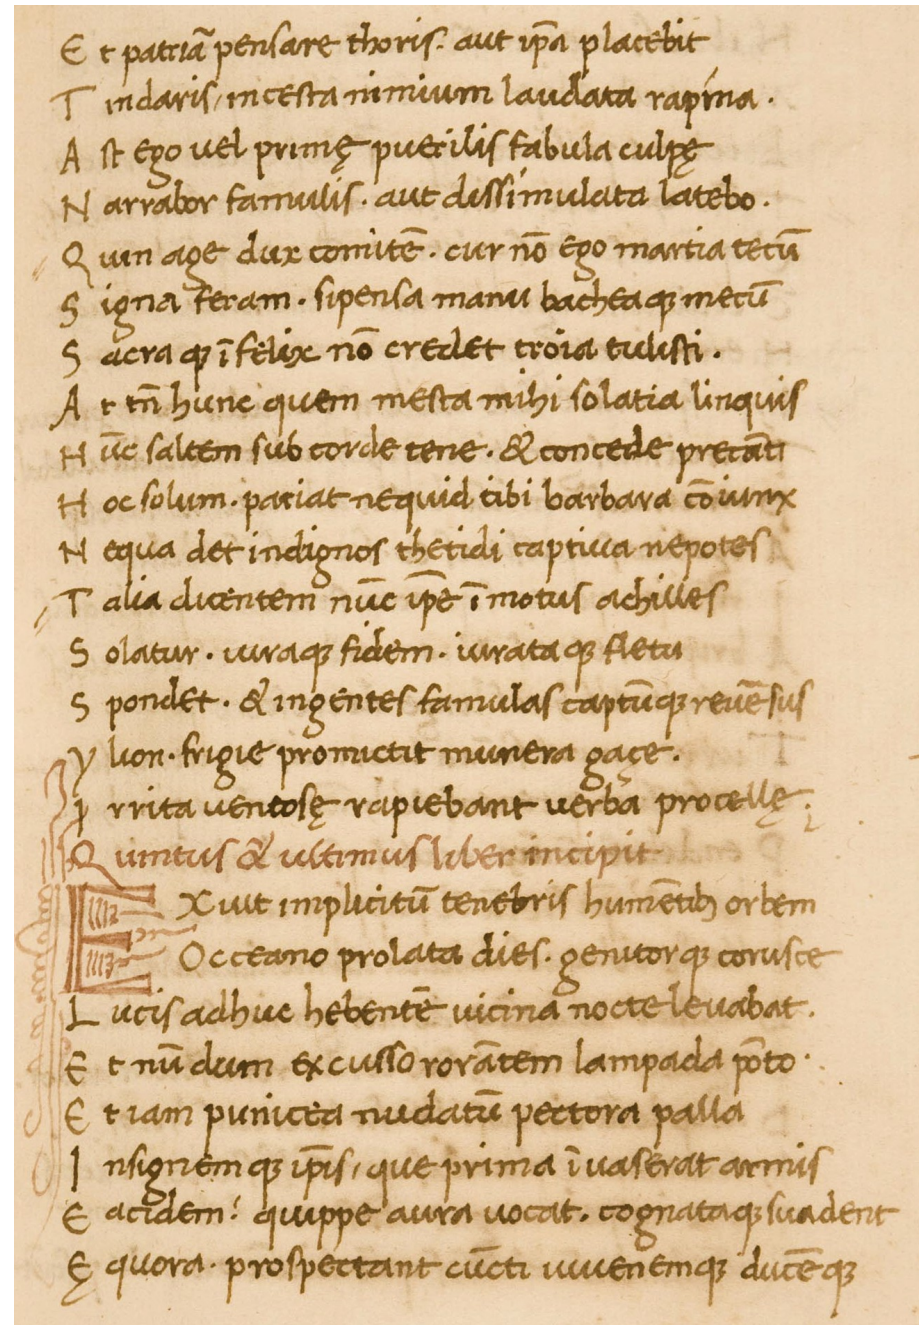 Et patriā pensare thoris. aut ip̄a placebit
Tindaris, incesta nimium laudata rapina.
Ast ego vel primę puerilis fabula culpę
Narrabor famulis. aut dissimulata latebo.
Quin age dux comitē. cur nō ego martia tecū
Signa feram. si pensa manu bacheaqꝫ mecū
Sacraqꝫ īfelix nō credet troia tulisti.
At tn̄ hunc quem mesta mihi solatia linquis
Hūc saltem sub corde tene. & concede precāti
Hoc solum. pariat nequid tibi barbara cōiunx
Nequa det indignos thetidi captiva nepotes
Talia dicentem nūc ip̄e īmotus achilles
Solatur. iuraqꝫ fidem. iurataqꝫ fletu
Spondet. & ingentes famulas captūqꝫ revēsus
Ylion. frigie promictit munera gaçe.
Irrita ventosę rapiebant verba procellę.
Quintus & ultimus liber incipit
EXuit implicitū tenebris humētibꝫ orbem
Occeano prolata dies. genitorqꝫ corusce
Lucis adhuc hebentē vicina nocte levabat.
Et nūdum excusso rorātem lampada pōto.
Et iam punicea nudatū pectora palla
Insignemqꝫ ip̄is, que prima īvaserat armis
Eacidem: quippe aura vocat. cognataqꝫ suadent
Ęquora. prospectant cūcti iuvenemqꝫ ducēqꝫ